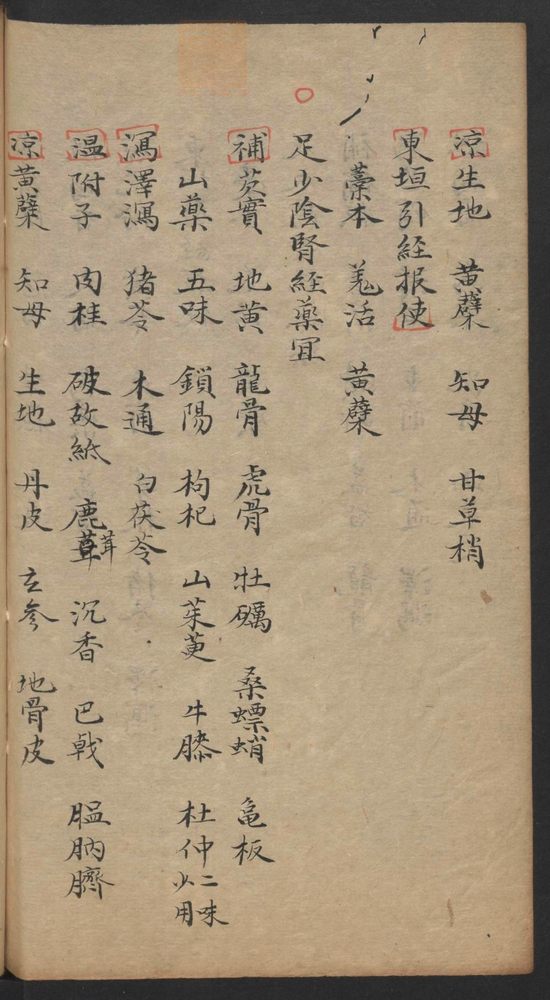 凉生地 黄蘗 知母 甘草梢
東垣引經报使
藁本 羗活 黄蘗
足少陰腎經藥冝
補芡實 地黄 龍骨 虎骨 牡礪 桑螵蛸 龟板
山藥 五味 鎖陽 枸杞 山茱萸 牛膝 杜仲 二味少用
瀉澤瀉 猪苓 木通 白茯苓
温附子 肉桂 破故紙 鹿茸 沉香 巴戟 腽肭臍
凉黄蘗 知母 生地 丹皮 玄參 地骨皮